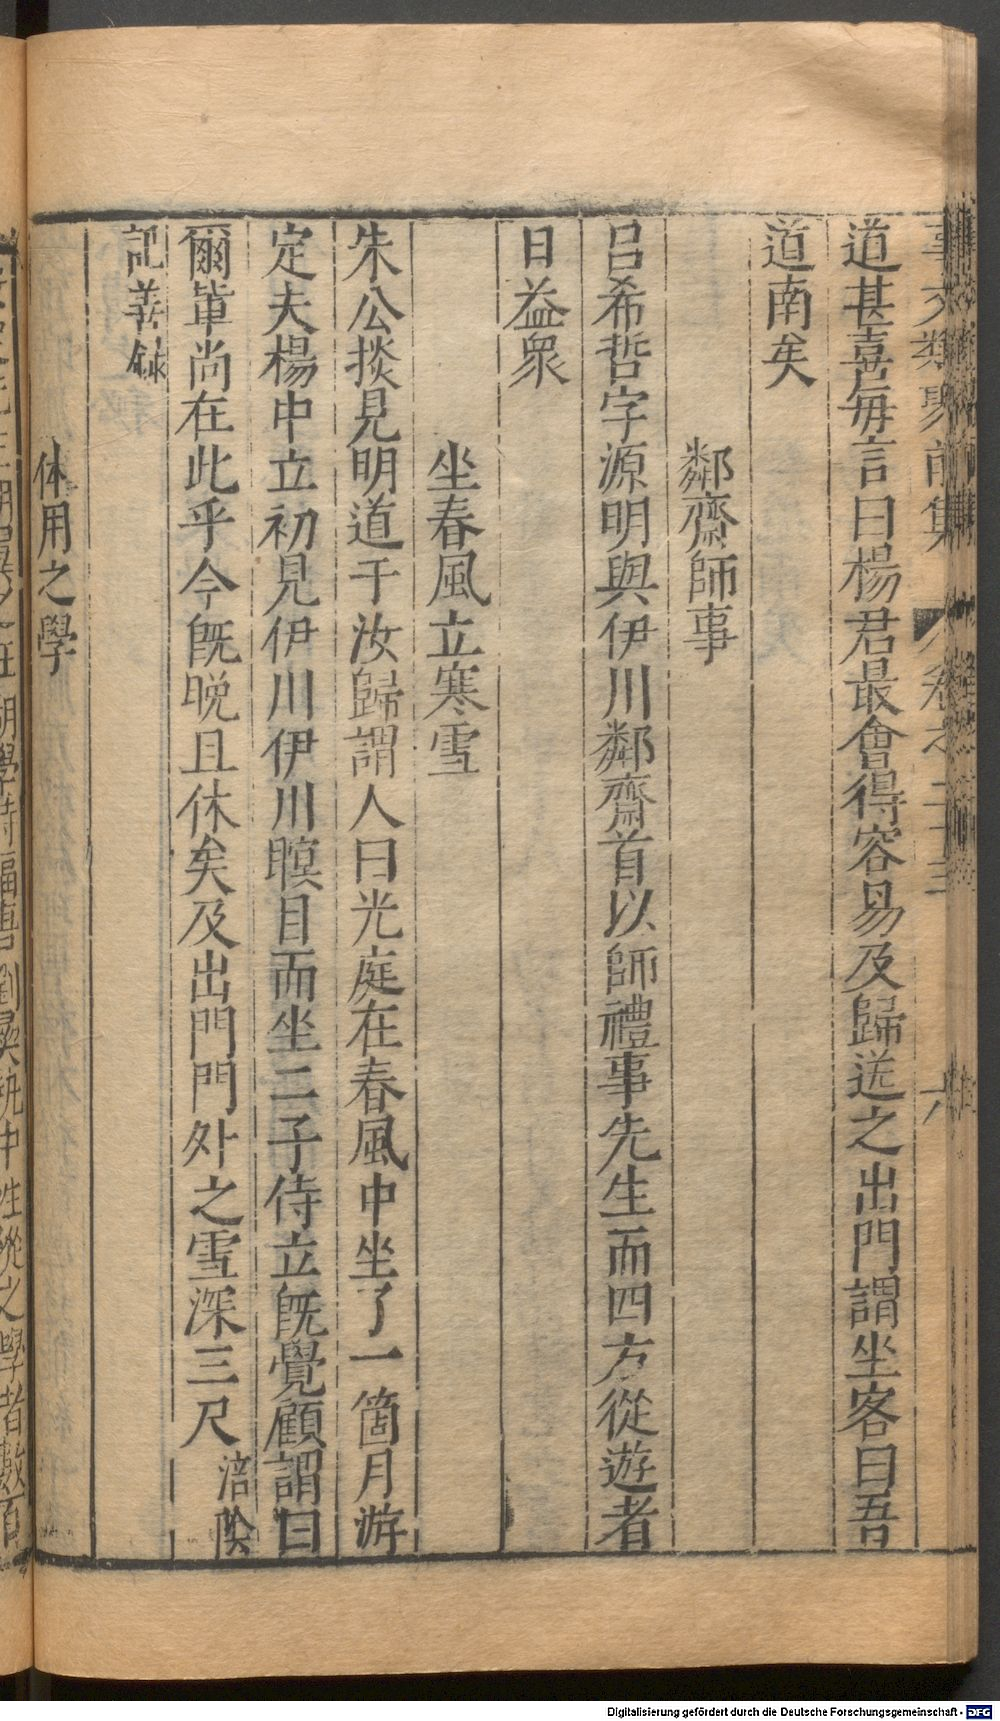 事文類聚前集 卷之二十三 六
道甚喜每言曰楊君最會得容易及歸送之出門謂坐客曰吾
道南矣
鄰齋師事
呂希哲字源明與伊川鄰齋首以師禮事先生而四方從遊者
日益衆
坐春風立寒雪
朱公掞見明道于汝歸謂人曰光庭在春風中坐了一箇月游
定夫楊中立初見伊川伊川瞑目而坐二子侍立旣覺顧謂曰
爾輩尚在此乎今旣晚且休矣及出門門外之雪深三尺 涪陵
記善錄
体用之學
Digitalisierung gefördert durch die Deutsche Forschungsgemeinschaft - DFG